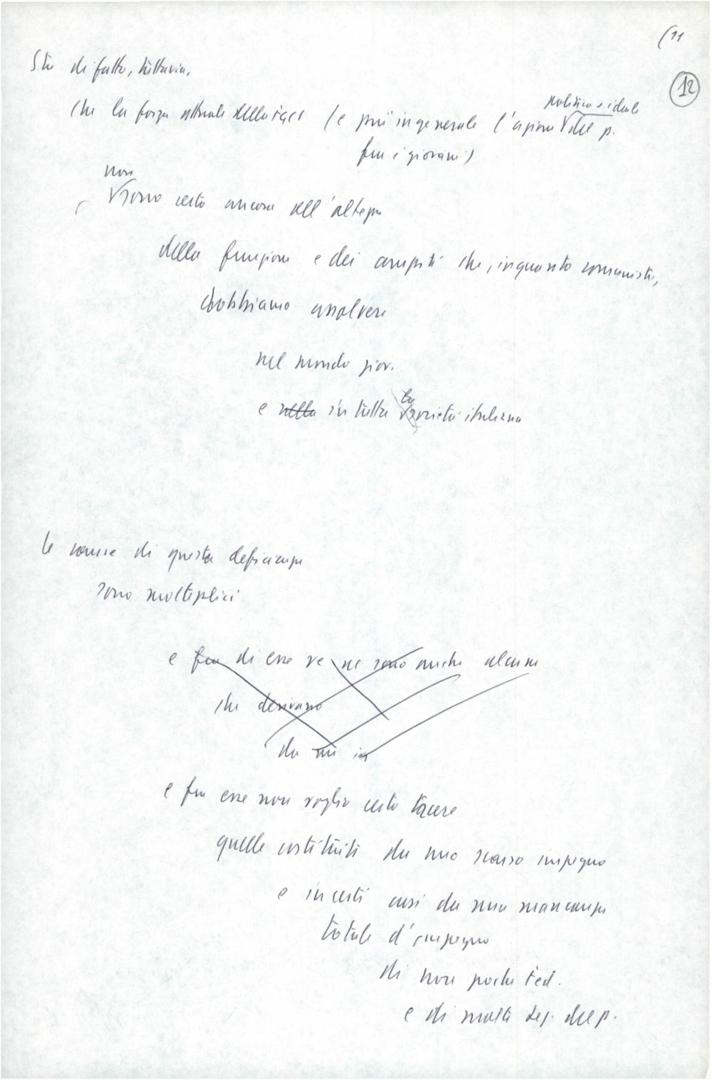 (11
12
Sta di fatto, tuttavia,
politico e ideale
che la forza attuale della FGCI (e più in generale l'azione del p.
fra i giovani)
non
sono certo ancora all'altezza
della funzione e dei compiti che, in quanto comunisti,
dobbiamo assolvere
nel mondo giov.
e nella in tutta la società italiana
Le cause di questa deficienza
sono molteplici
e fra di esse ve ne sono anche alcune
che derivano
da un in
e fra esse non voglio certo tacere
quelle costituite da uno scarso impegno
e in certi casi da una mancanza
totale d'impegno
di non poche fed.
e di molte sez. del p.